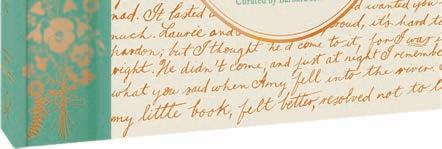 Curated by Barbara
mad. It lasted wanted you
much. Laurie and proud, it's hard to
pardon; but I thought he'd come to it, for I was in
right. He didn't come, and just at night I remembe
what you said when Amy fell into the river. I
my little book, felt better, resolved not to l